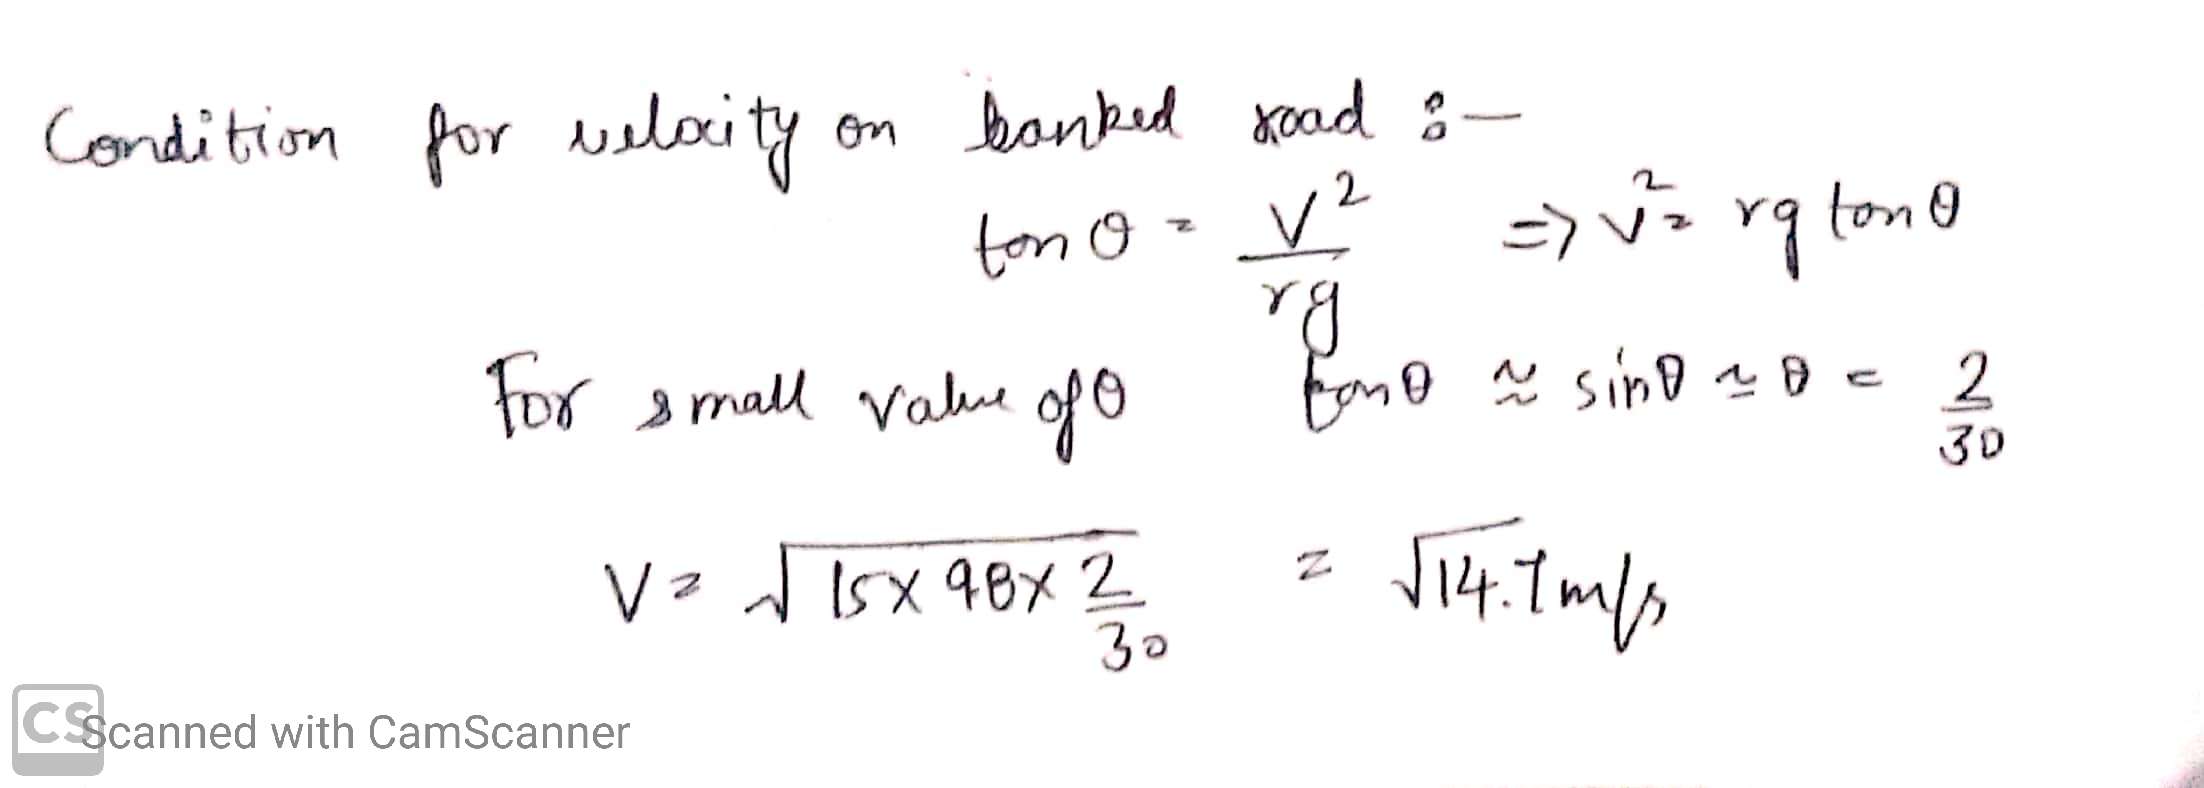 Condition for velocity on banked road :-
tan θ = V²/rg ⇒ V² = rg tan θ
For small value of θ tan θ ≈ sin θ ≈ θ = 2/30
V = √15 x 98 x 2/30 = √14.7 m/s
CS Scanned with CamScanner